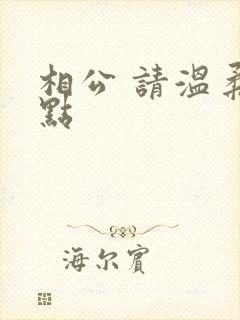 相公 請溫柔
點
海尔賓